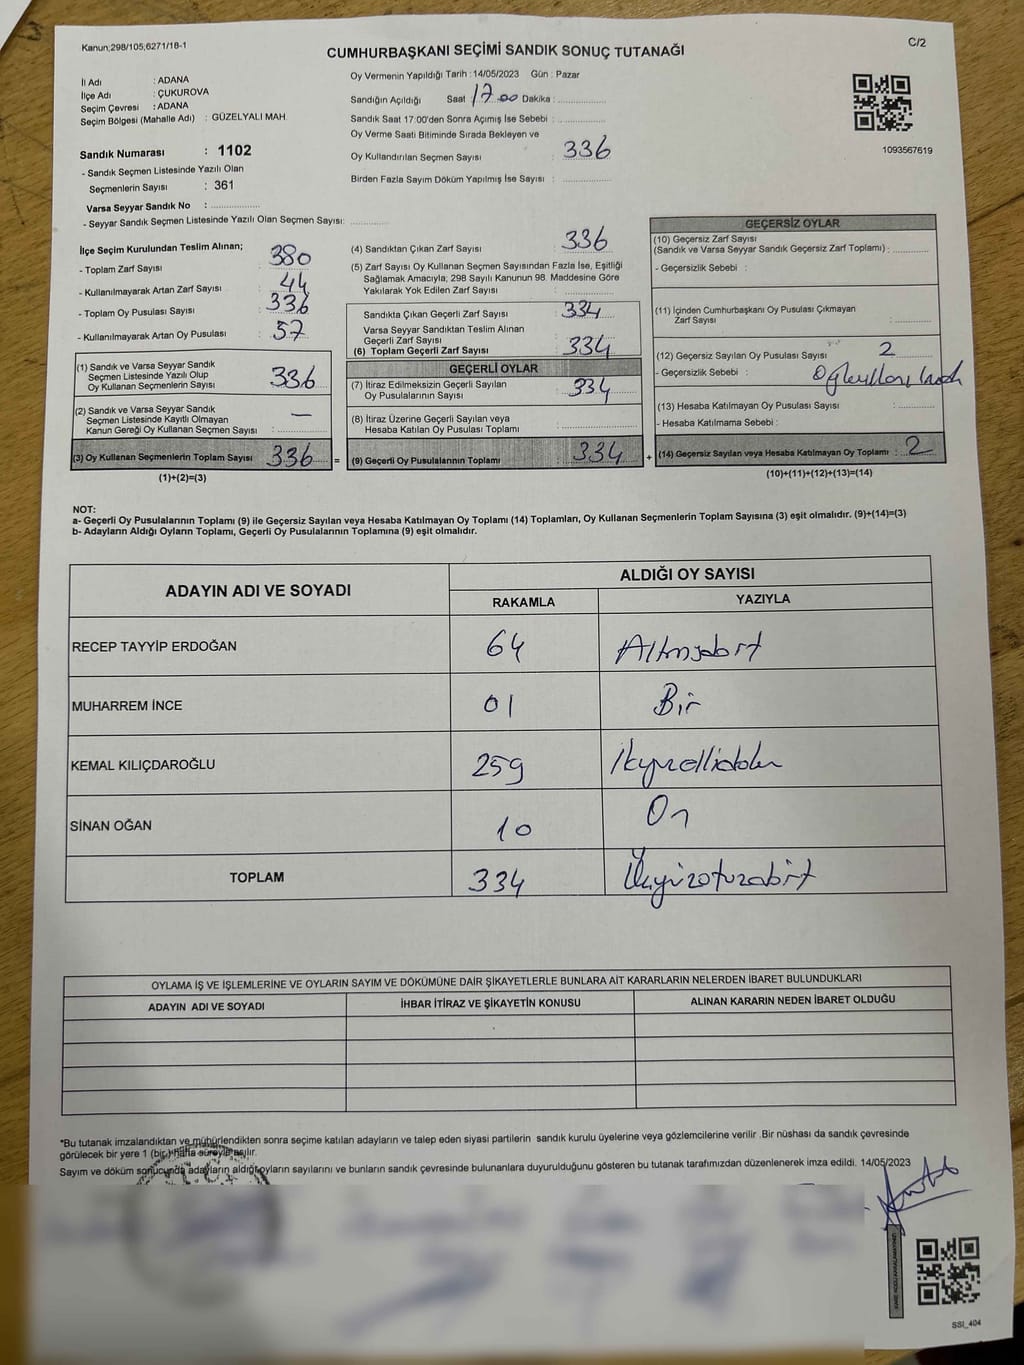 Kanun;298/105;6271/18-1
CUMHURBAŞKANI SEÇİMİ SANDIK SONUÇ TUTANAĞI
C/2
İl Adı : ADANA
İlçe Adı : ÇUKUROVA
Seçim Çevresi : ADANA
Seçim Bölgesi (Mahalle Adı) : GÜZELYALI MAH.
Sandık Numarası : 1102
- Sandık Seçmen Listesinde Yazılı Olan
Seçmenlerin Sayısı : 361
Varsa Seyyar Sandık No : ..............
- Seyyar Sandık Seçmen Listesinde Yazılı Olan Seçmen Sayısı: ..............
Oy Vermenin Yapıldığı Tarih : 14/05/2023 Gün : Pazar
Sandığın Açıldığı Saat 17.00 Dakika : ..............
Sandık Saat 17:00'den Sonra Açımış İse Sebebi : ..............
Oy Verme Saati Bitiminde Sırada Bekleyen ve
Oy Kullandırılan Seçmen Sayısı : 336
Birden Fazla Sayım Döküm Yapılmış İse Sayısı : ..............
1093567619
İlçe Seçim Kurulundan Teslim Alınan;
- Toplam Zarf Sayısı : 380
- Kullanılmayarak Artan Zarf Sayısı : 44
- Toplam Oy Pusulası Sayısı : 336
- Kullanılmayarak Artan Oy Pusulası : 57
(1) Sandık ve Varsa Seyyar Sandık
Seçmen Listesinde Yazılı Olup
Oy Kullanan Seçmenlerin Sayısı : 336
(2) Sandık ve Varsa Seyyar Sandık
Seçmen Listesinde Kayıtlı Olmayan
Kanun Gereği Oy Kullanan Seçmen Sayısı : —
(3) Oy Kullanan Seçmenlerin Toplam Sayısı 336 =
(1)+(2)=(3)
(4) Sandıktan Çıkan Zarf Sayısı : 336
(5) Zarf Sayısı Oy Kullanan Seçmen Sayısından Fazla İse, Eşitliği
Sağlamak Amacıyla; 298 Sayılı Kanunun 98. Maddesine Göre
Yakılarak Yok Edilen Zarf Sayısı : ..............
Sandıkta Çıkan Geçerli Zarf Sayısı : 334
Varsa Seyyar Sandıktan Teslim Alınan
Geçerli Zarf Sayısı
(6) Toplam Geçerli Zarf Sayısı : 334
GEÇERLİ OYLAR
(7) İtiraz Edilmeksizin Geçerli Sayılan
Oy Pusulalarının Sayısı : 334
(8) İtiraz Üzerine Geçerli Sayılan veya
Hesaba Katılan Oy Pusulası Toplamı : ..............
(9) Geçerli Oy Pusulalarının Toplamı : 334 +
GEÇERSİZ OYLAR
(10) Geçersiz Zarf Sayısı
(Sandık ve Varsa Seyyar Sandık Geçersiz Zarf Toplamı) : ..............
- Geçersizlik Sebebi :
(11) İçinden Cumhurbaşkanı Oy Pusulası Çıkmayan
Zarf Sayısı : ..............
(12) Geçersiz Sayılan Oy Pusulası Sayısı : 2
- Geçersizlik Sebebi :
(13) Hesaba Katılmayan Oy Pusulası Sayısı : ..............
- Hesaba Katılmama Sebebi :
(14) Geçersiz Sayılan veya Hesaba Katılmayan Oy Toplamı : 2
(10)+(11)+(12)+(13)=(14)
NOT:
a- Geçerli Oy Pusulalarının Toplamı (9) ile Geçersiz Sayılan veya Hesaba Katılmayan Oy Toplamı (14) Toplamları, Oy Kullanan Seçmenlerin Toplam Sayısına (3) eşit olmalıdır. (9)+(14)=(3)
b- Adayların Aldığı Oyların Toplamı, Geçerli Oy Pusulalarının Toplamına (9) eşit olmalıdır.
ADAYIN ADI VE SOYADI ALDIĞI OY SAYISI
RAKAMLA YAZIYLA
RECEP TAYYİP ERDOĞAN 64 Altmışdört
MUHARREM İNCE 01 Bir
KEMAL KILIÇDAROĞLU 259
SİNAN OĞAN 10 On
TOPLAM 334
OYLAMA İŞ VE İŞLEMLERİNE VE OYLARIN SAYIM VE DÖKÜMÜNE DAİR ŞİKAYETLERLE BUNLARA AİT KARARLARIN NELERDEN İBARET BULUNDUKLARI
ADAYIN ADI VE SOYADI İHBAR İTİRAZ VE ŞİKAYETİN KONUSU ALINAN KARARIN NEDEN İBARET OLDUĞU
*Bu tutanak imzalandıktan ve mühürlendikten sonra seçime katılan adayların ve talep eden siyasi partilerin sandık kurulu üyelerine veya gözlemcilerine verilir .Bir nüshası da sandık çevresinde
görülecek bir yere 1 (bir) hafta süreyle asılır.
Sayım ve döküm sonucunda adayların aldığı oyların sayılarını ve bunların sandık çevresinde bulunanlara duyurulduğunu gösteren bu tutanak tarafımızdan düzenlenerek imza edildi. 14/05/2023
SSI_404